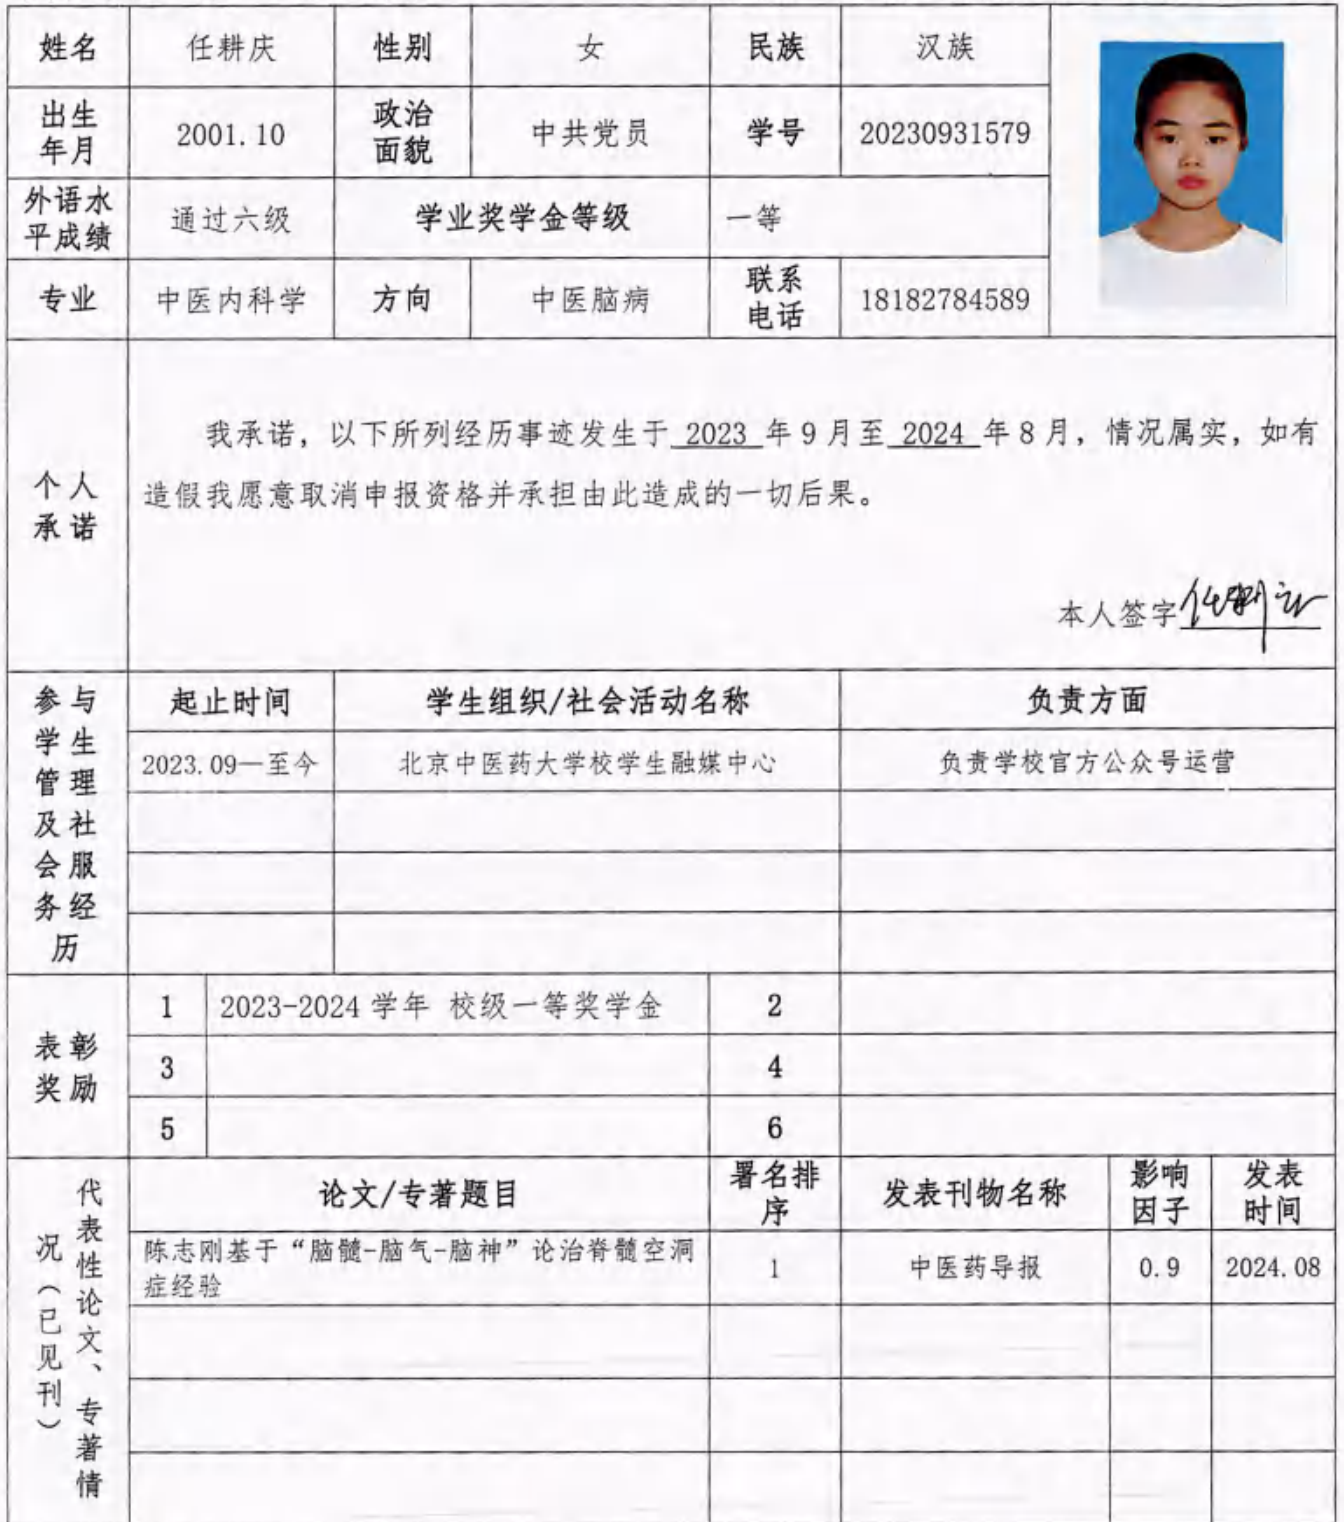 姓名 任耕庆 性别 女 民族 汉族
出生年月 2001.10 政治面貌 中共党员 学号 20230931579
外语水平成绩 通过六级 学业奖学金等级 一等
专业 中医内科学 方向 中医脑病 联系电话 18182784589
个人承诺
我承诺，以下所列经历事迹发生于 2023 年 9 月至 2024 年 8 月，情况属实，如有
造假我愿意取消申报资格并承担由此造成的一切后果。
本人签字 任耕庆
参与学生管理及社会服务经历
起止时间 学生组织/社会活动名称 负责方面
2023.09—至今 北京中医药大学校学生融媒中心 负责学校官方公众号运营
表彰奖励
1 2023-2024 学年 校级一等奖学金 2
3 4
5 6
代表性论文、专著情况（已见刊）
论文/专著题目 署名排序 发表刊物名称 影响因子 发表时间
陈志刚基于“脑髓-脑气-脑神”论治脊髓空洞
症经验 1 中医药导报 0.9 2024.08